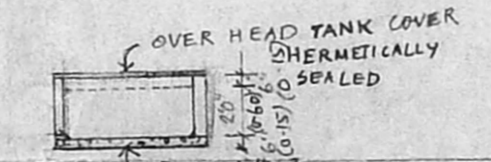 OVER HEAD TANK COVER
HERMETICALLY
SEALED
(0.60)
6"
(0.15)